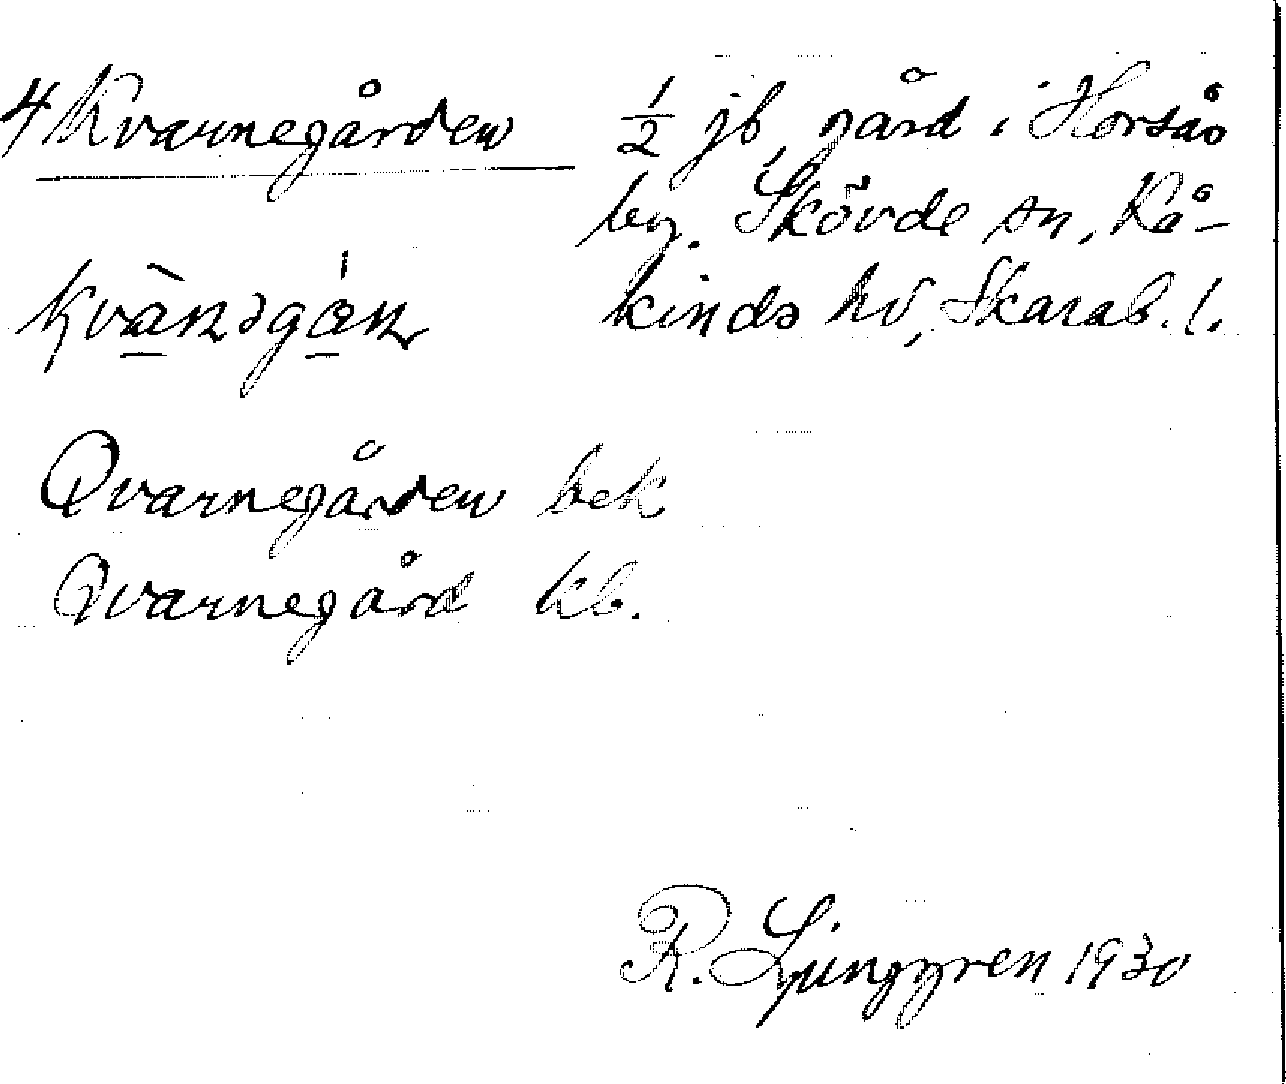 4 Kvarnegården ½ jb, gård i Horsås
by. Skövde sn, Kå-
kinds hd, Skarab. l.
Qvarnegården bek
Qvarnegård kb.
R. Ljunggren 1930